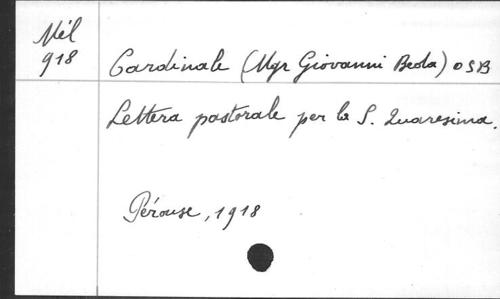 Mél
918
Cardinale (Mgr Giovanni Beda) OSB
Lettera pastorale per la S. Quaresima.
Pérouse, 1918